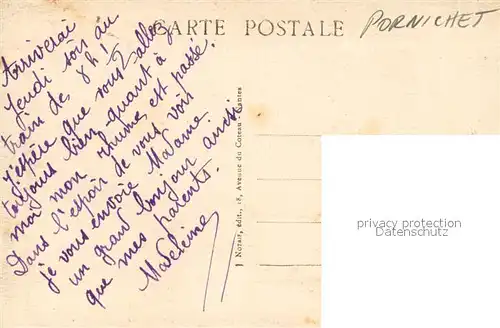 CARTE POSTALE
PORNICHET
Arriverai
Jeudi soir au
train de 8h1/2
J'espère que vous allez
toujours bien, quant à
moi mon rhume est passé.
Dans l'espoir de vous voir
je vous envoie Madame
un grand bonjour ainsi
que mes parents.
Madeleine
J. Nozais, édit., 18, Avenue du Coteau - Nantes
privacy protection
Datenschutz